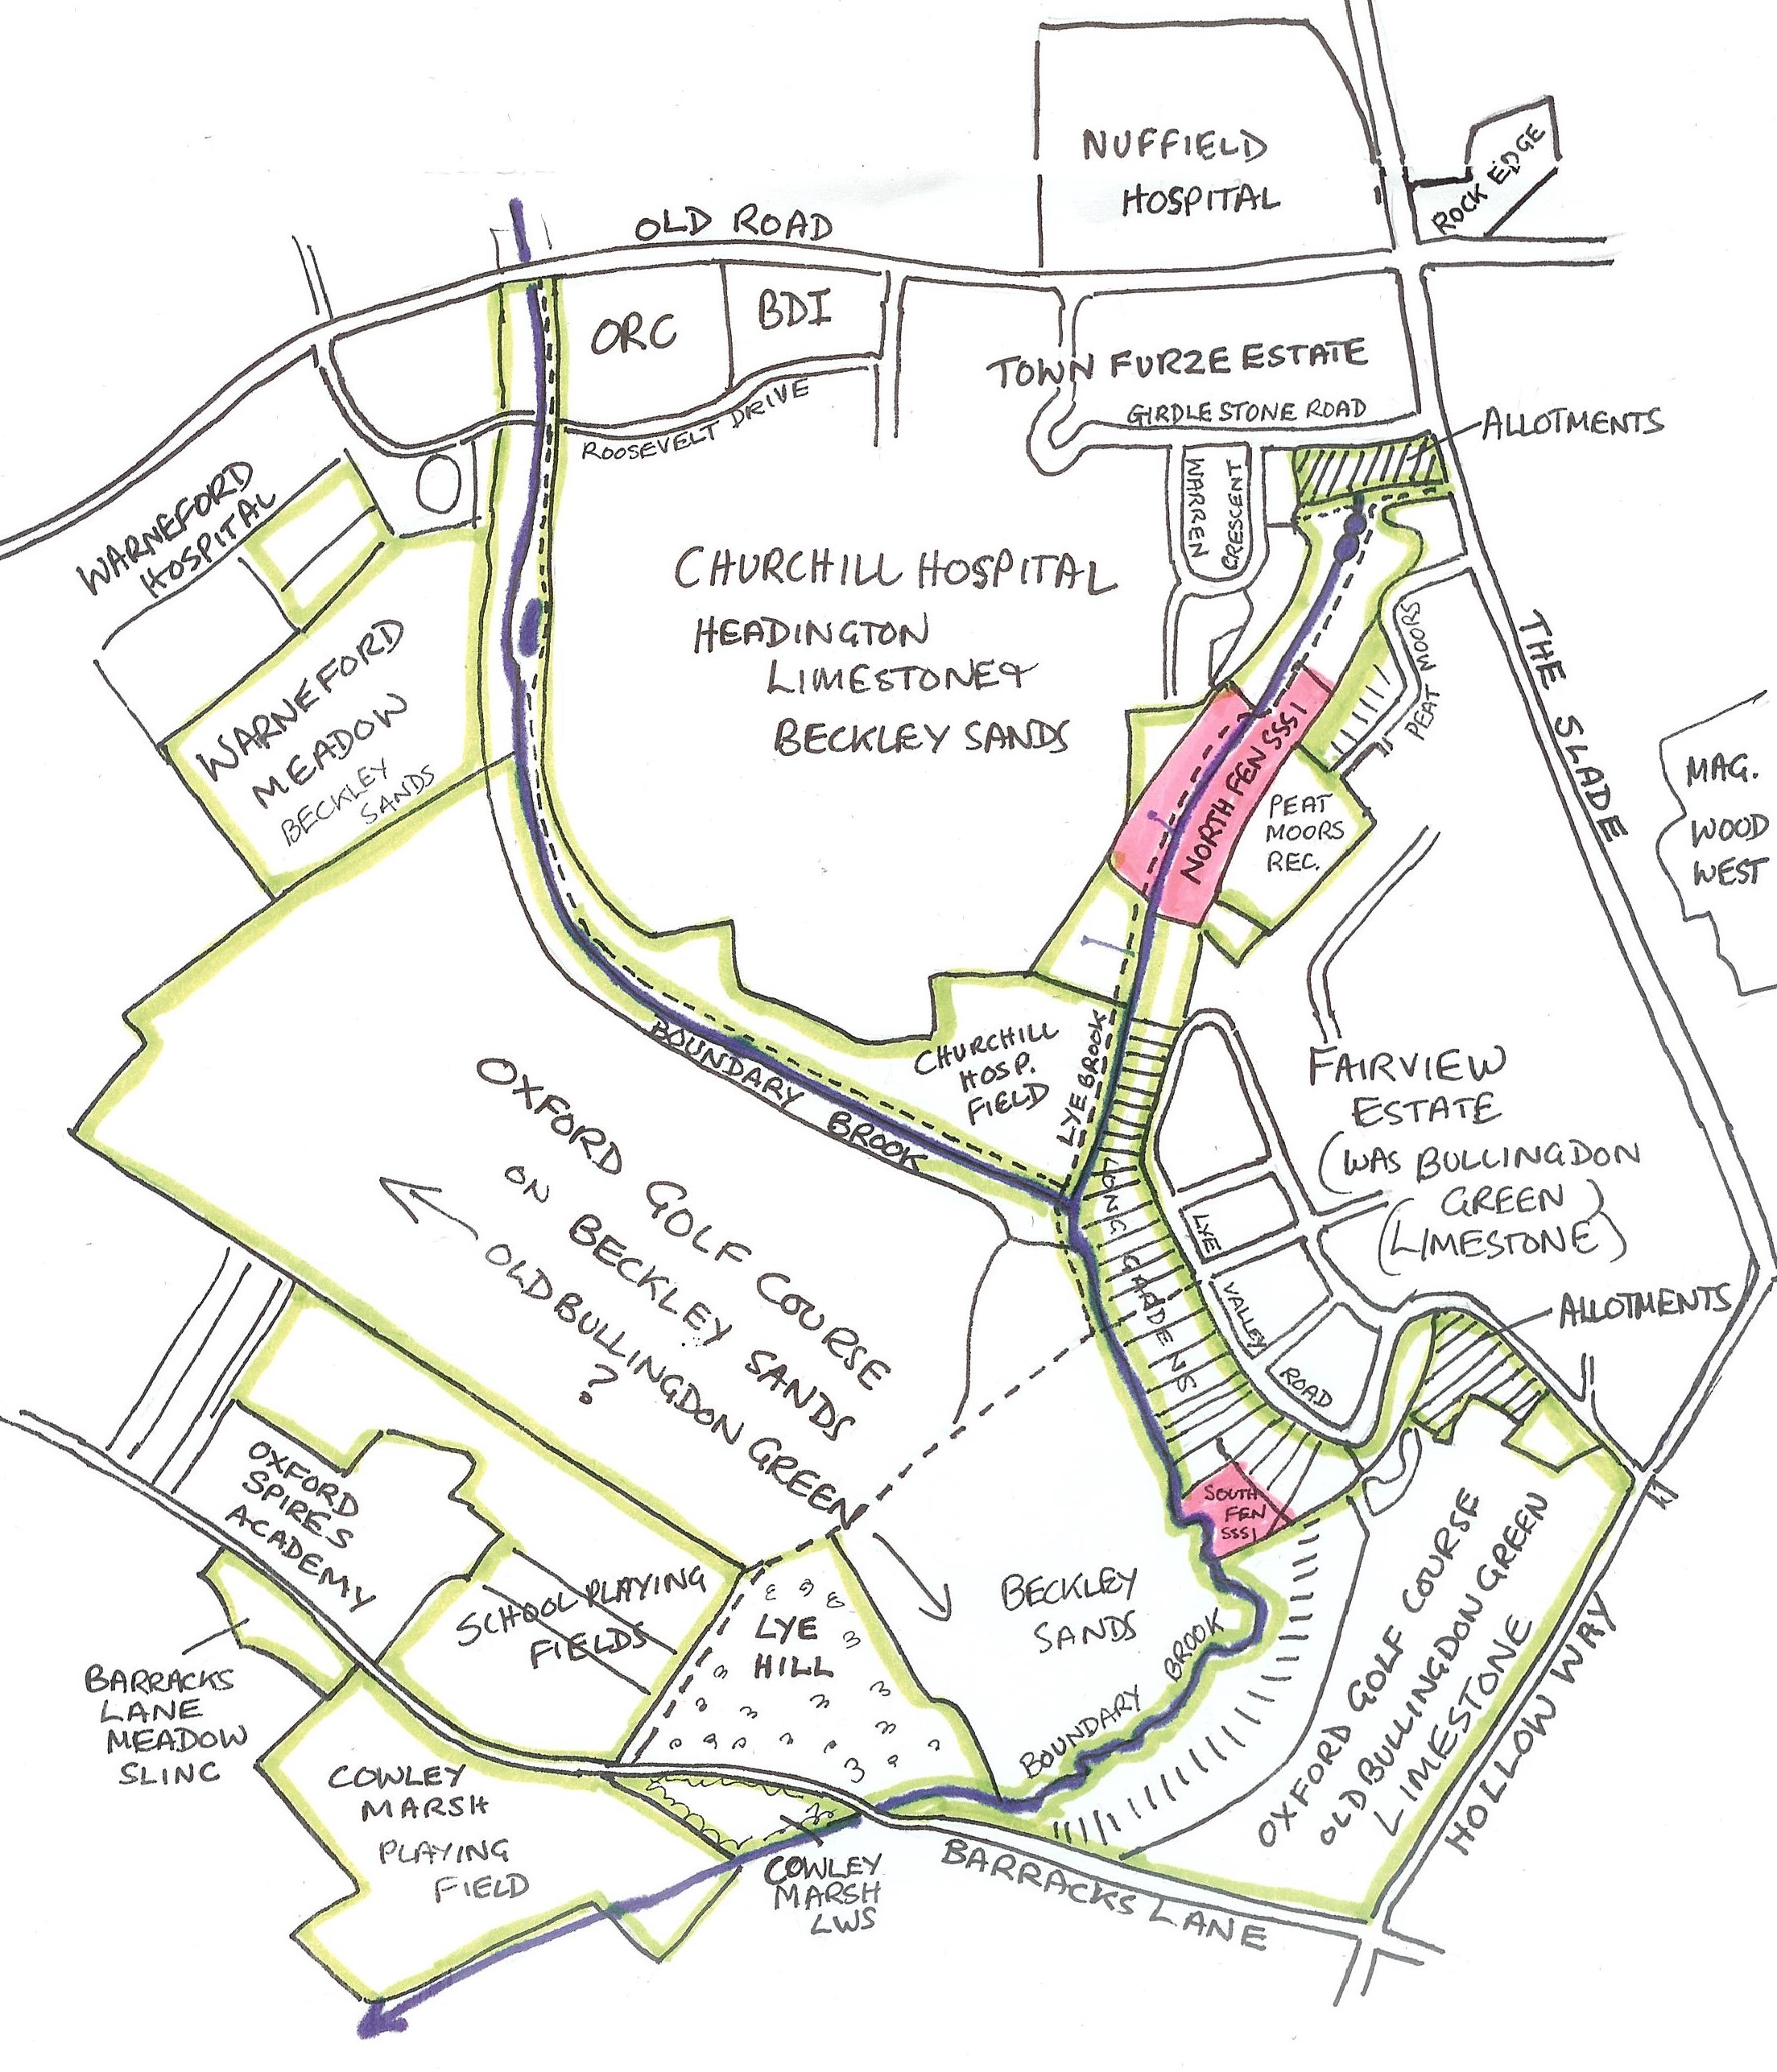 NUFFIELD
HOSPITAL
ROCK EDGE
OLD ROAD
ORC
BDI
TOWN FURZE ESTATE
GIRDLESTONE ROAD
ALLOTMENTS
ROOSEVELT DRIVE
WARREN
CRESCENT
WARNEFORD
HOSPITAL
CHURCHILL HOSPITAL
HEADINGTON
LIMESTONE &
BECKLEY SANDS
PEAT MOORS
THE SLADE
WARNEFORD
MEADOW
BECKLEY
SANDS
NORTH FEN SSSI
PEAT
MOORS
REC.
MAG.
WOOD
WEST
BOUNDARY BROOK
CHURCHILL
HOSP.
FIELD
LYE BROOK
FAIRVIEW
ESTATE
(WAS BULLINGDON
GREEN)
(LIMESTONE)
LONG GARDENS
LYE
VALLEY
ROAD
ALLOTMENTS
OXFORD GOLF COURSE
ON BECKLEY SANDS
OLD BULLINGDON GREEN
?
OXFORD
SPIRES
ACADEMY
SOUTH
FEN
SSSI
SCHOOL PLAYING
FIELDS
LYE
HILL
BECKLEY
SANDS
BOUNDARY BROOK
OXFORD GOLF COURSE
OLD BULLINGDON GREEN
LIMESTONE
HOLLOW WAY
BARRACKS
LANE
MEADOW
SLINC
COWLEY
MARSH
PLAYING
FIELD
COWLEY
MARSH
LWS
BARRACKS LANE